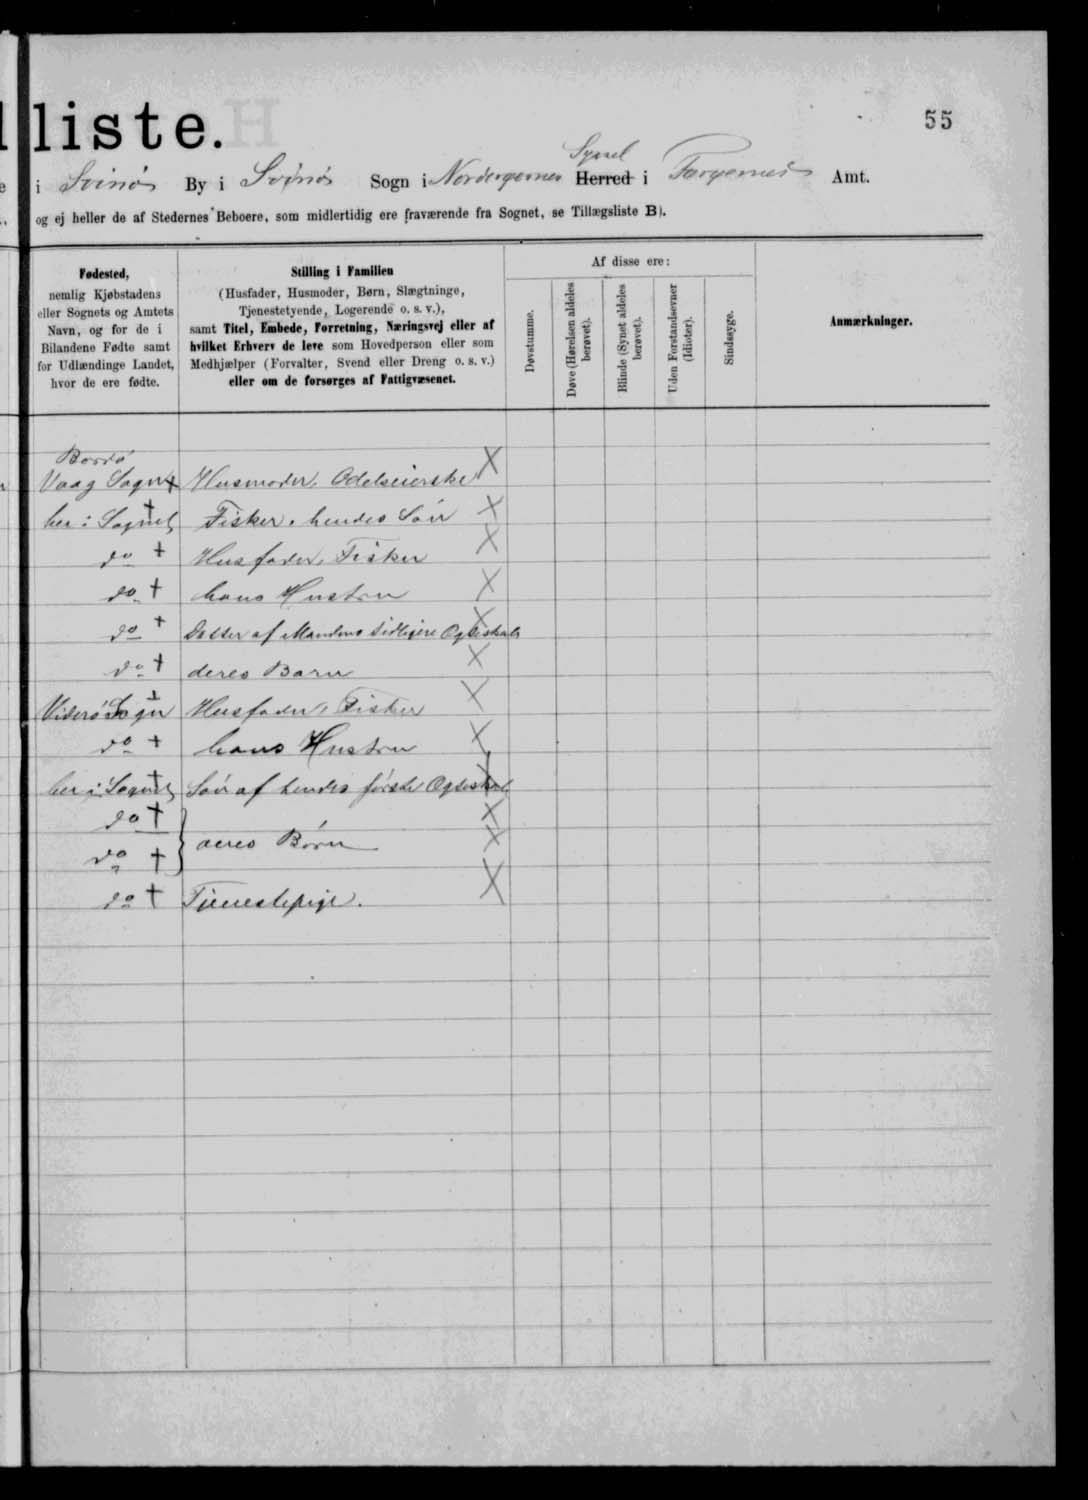 55
liste.
i Svinø By i Svinø Sogn i Norderøernes Syssel Herred i Færøernes Amt.
og ej heller de af Stedernes Beboere, som midlertidig ere fraværende fra Sognet, se Tillægsliste B).
Fødested,
nemlig Kjøbstadens
eller Sognets og Amtets
Navn, og for de i
Bilandene Fødte samt
for Udlændinge Landet,
hvor de ere fødte.
Stilling i Familien
(Husfader, Husmoder, Børn, Slægtninge,
Tjenestetyende, Logerende o. s. v.),
samt Titel, Embede, Forretning, Næringsvej eller af
hvilket Erhverv de leve som Hovedperson eller som
Medhjælper (Forvalter, Svend eller Dreng o. s. v.)
eller om de forsørges af Fattigvæsenet.
Af disse ere:
Døvstumme.
Døve (Hørelsen aldeles
berøvet).
Blinde (Synet aldeles
berøvet).
Uden Forstandsevner
(Idioter).
Sindssyge.
Anmærkninger.
Bordø
Vaag Sogn + Husmoder, Odelseierske X
her i Sognet + Fisker, hendes Søn X
do + Husfader, Fisker X
do + hans Hustru X
do + Datter af Mandens tidligere Ægteskab X
do + deres Barn X
Viderø Sogn + Husfader, Fisker X
do + hans Hustru X
her i Sognet + Søn af hendes første Ægteskab X
do + X
do + } deres Børn X
do + Tjenestepige. X